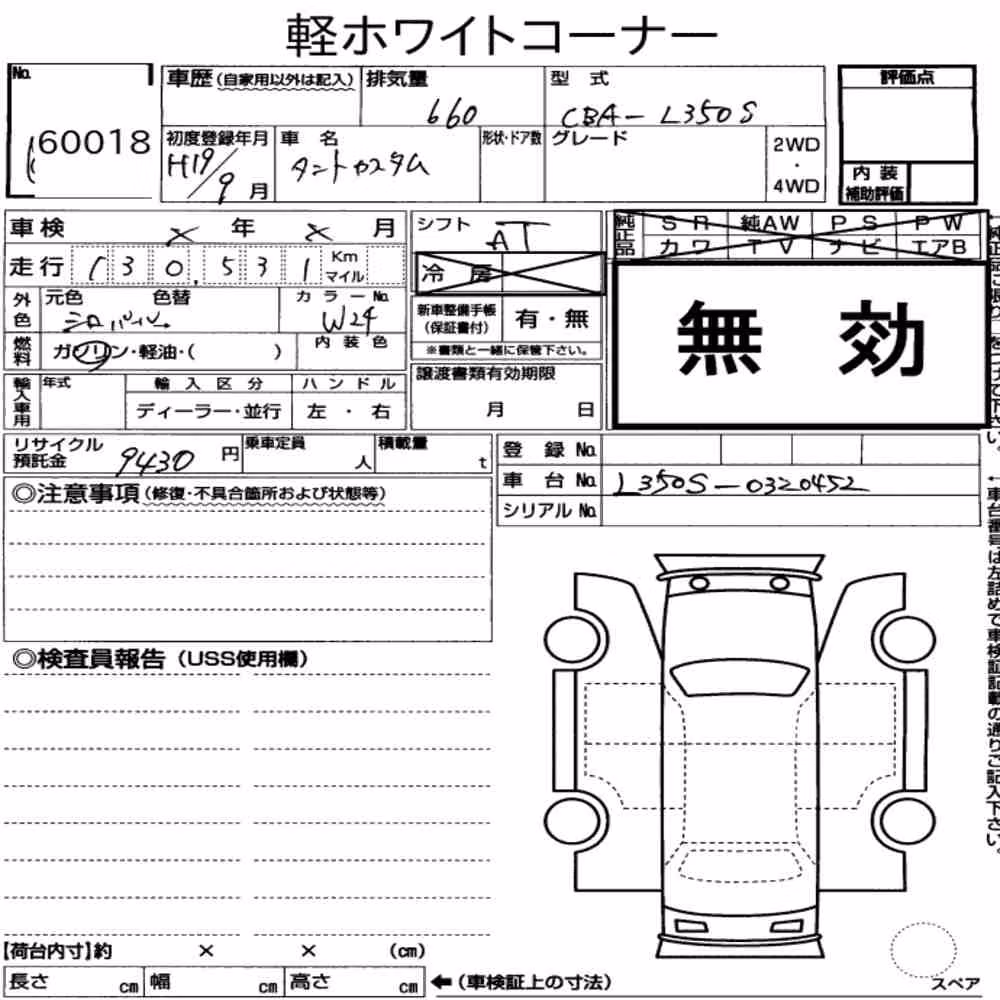 軽ホワイトコーナー
No. 60018
車歴(自家用以外は記入) 排気量 660
型式 CBA-L350S
評価点
初度登録年月 H19/9月
車名 タントカスタム
形状・ドア数 グレード
2WD・4WD
内装補助評価
車検 × 年 × 月
シフト AT
純正品 SR 純AW PS PW
カワ TV ナビ エアB
走行 130,531 Km マイル
冷房
無効
外色 元色 シロパール 色替
カラーNo. W24
新車整備手帳(保証書付) 有・無
※書類と一緒に保管下さい。
燃料 ガソリン・軽油・( )
内装色
輸入車用 年式 輸入区分 ハンドル
ディーラー・並行 左・右
譲渡書類有効期限
月 日
リサイクル預託金 9430円
乗車定員 人
積載量 t
登録No.
車台No. L350S-0320452
シリアルNo.
◎注意事項(修復・不具合箇所および状態等)
◎検査員報告(USS使用欄)
【荷台内寸】約 × × (cm)
長さ cm 幅 cm 高さ cm ←(車検証上の寸法)
スペア
←車台番号は左詰めで車検証記載の通りご記入下さい。